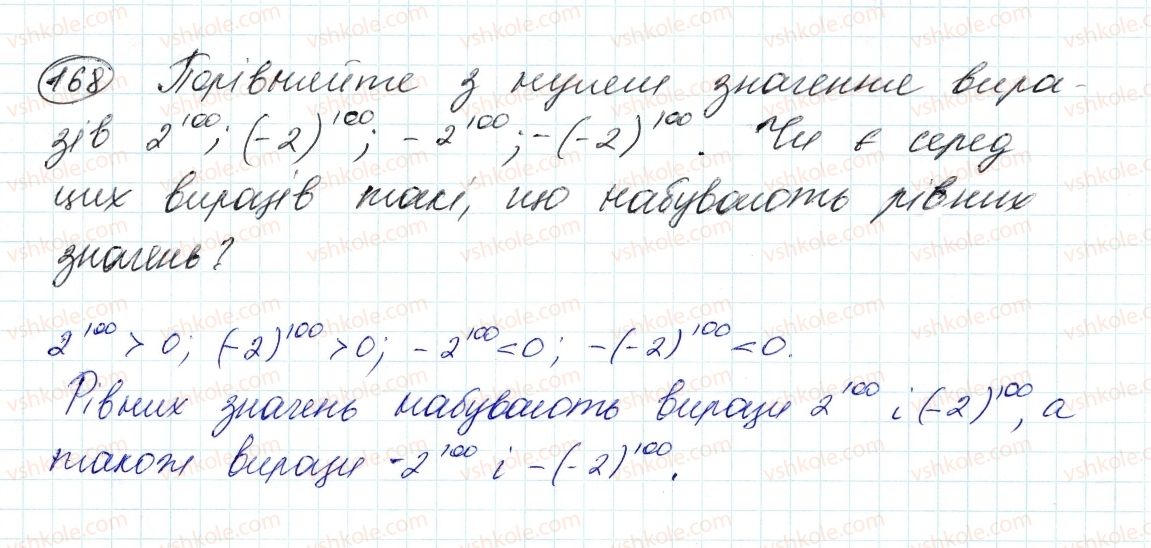 168 Порівняйте з нулем значення вира-
зів 2^100; (-2)^100; -2^100; -(-2)^100. Чи є серед
цих виразів такі, що набувають рівних
значень?
2^100 > 0; (-2)^100 > 0; -2^100 < 0; -(-2)^100 < 0.
Рівних значень набувають вирази 2^100 і (-2)^100, а
також вирази -2^100 і -(-2)^100.